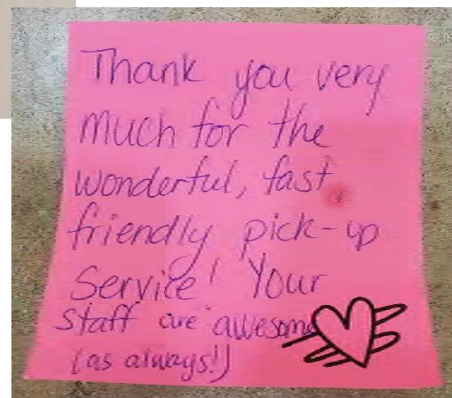 Thank you very
much for the
wonderful, fast
friendly pick-up
Service! Your
Staff are awesome
(as always!)